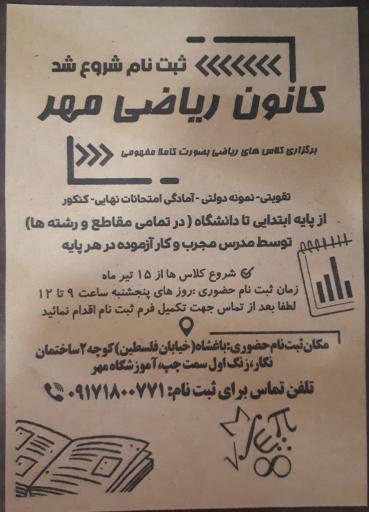 ثبت نام شروع شد
کانون ریاضی مهر
برگزاری کلاس های ریاضی بصورت کاملا مفهومی
تقویتی- نمونه دولتی - آمادگی امتحانات نهایی- کنکور
از پایه ابتدایی تا دانشگاه ( در تمامی مقاطع و رشته ها)
توسط مدرس مجرب و کار آزموده در هر پایه
شروع کلاس ها از ۱۵ تیر ماه
زمان ثبت نام حضوری :روز های پنجشنبه ساعت ۹ تا ۱۲
لطفا بعد از تماس جهت تکمیل فرم ثبت نام اقدام نمائید
مکان ثبت نام حضوری: باغشاه (خیابان فلسطین) کوچه ۲ ساختمان
نگار، زنگ اول سمت چپ، آموزشگاه مهر
تلفن تماس برای ثبت نام: ۰۹۱۷۱۸۰۰۷۷۱